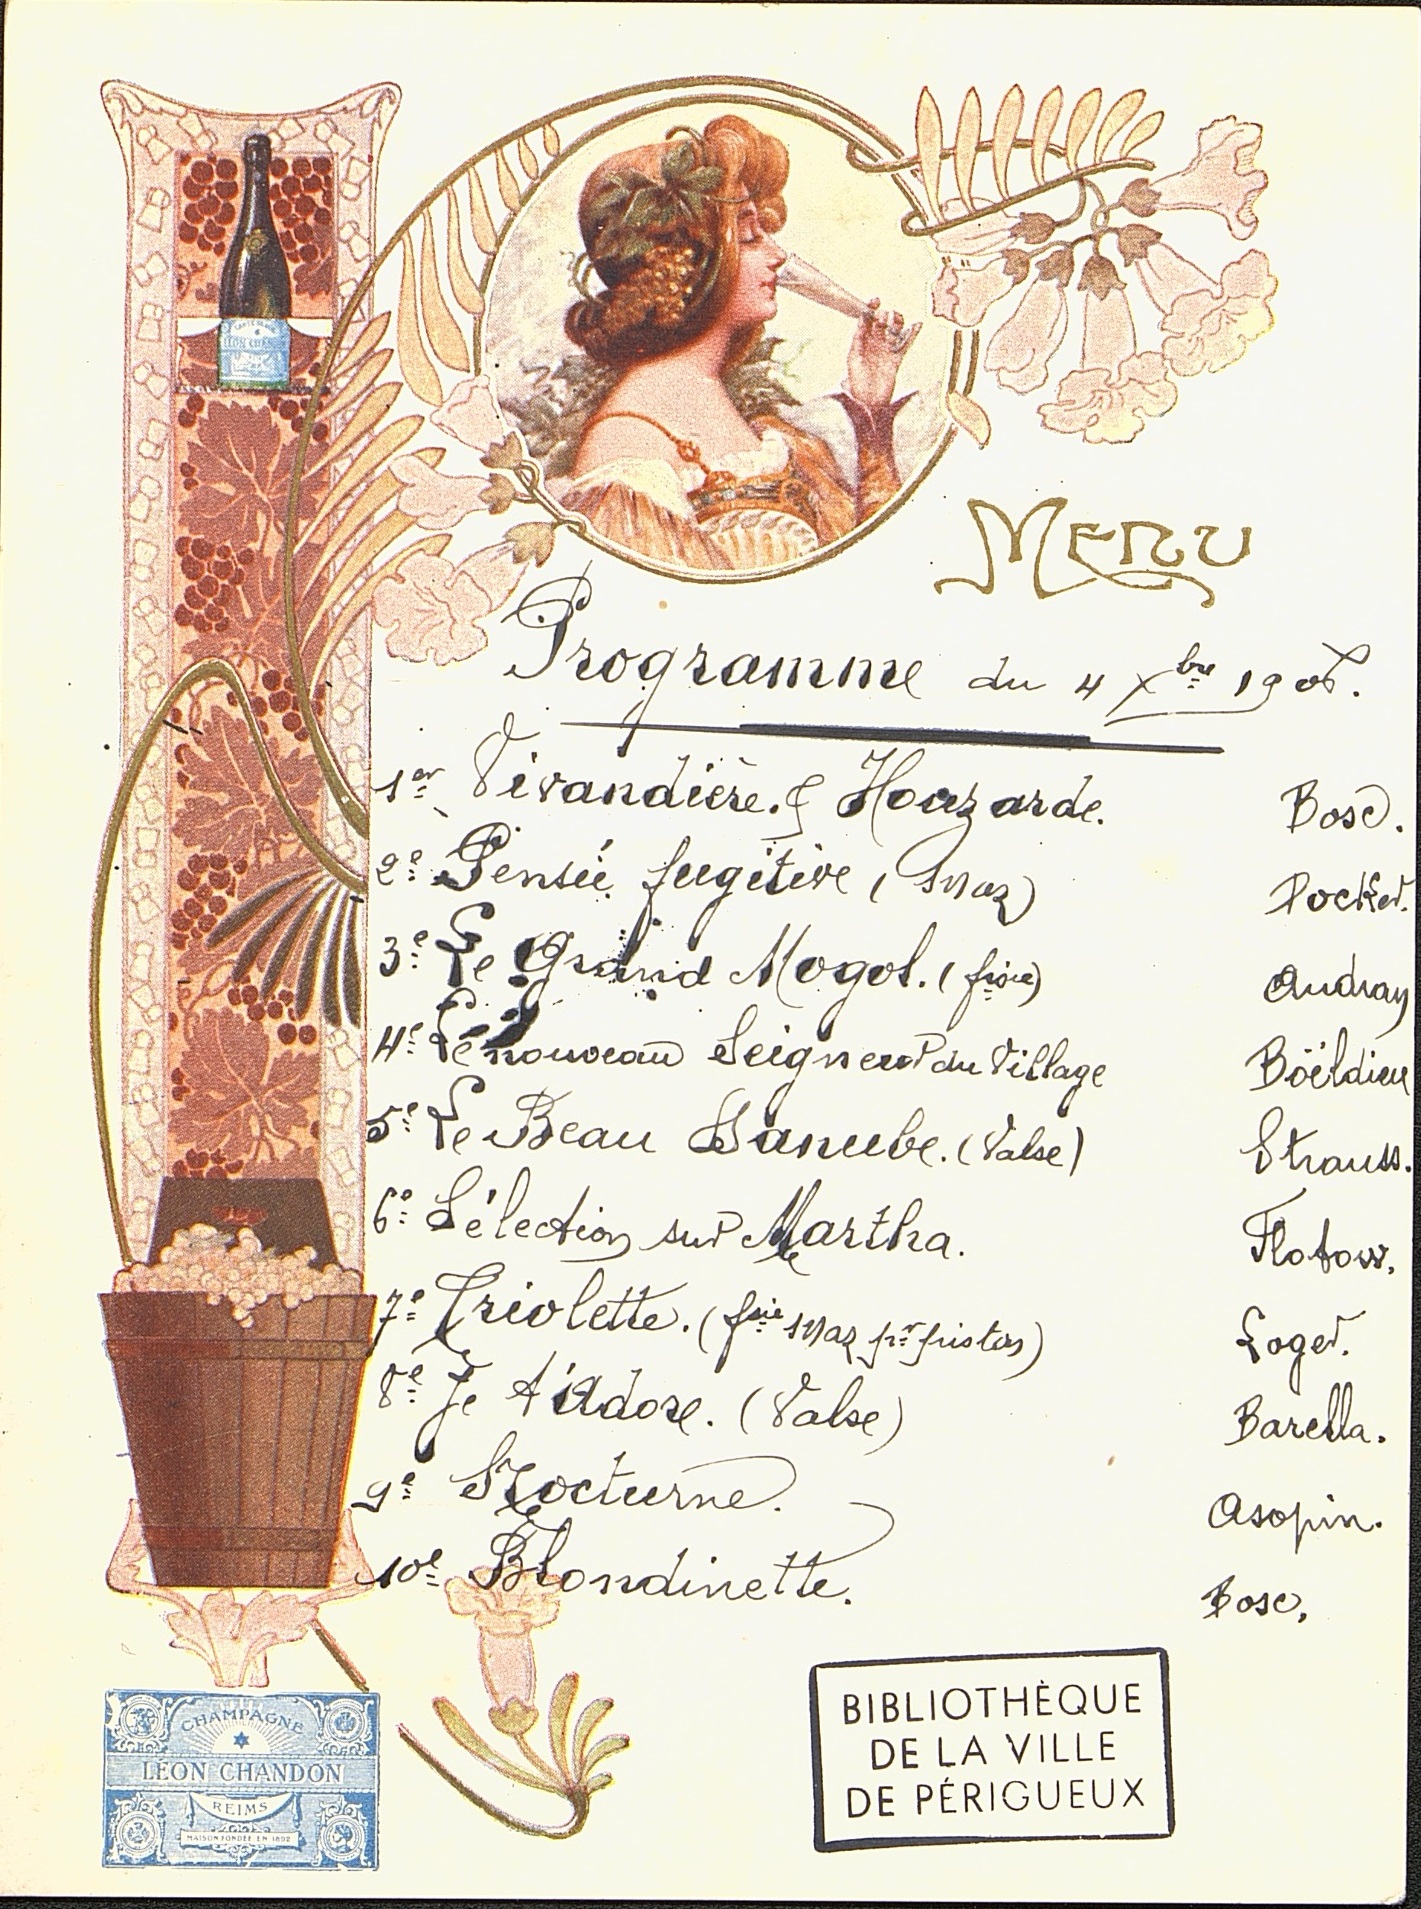 MENU
Programme du 4 Xbre 1906.
1er Vivandière & Houzarde. Bosc.
2e Pensée fugitive (Maz) Pocket.
3e Le Grand Mogol. (fsie) Audran
4e Le nouveau Seigneur du Village Böëldieu
5e Le Beau Danube. (Valse) Strauss.
6e Sélection sur Martha. Flotow.
7e Triolette. (fsie Maz pr pistons) Loger.
8e Je t'Adore. (Valse) Barella.
9e Nocturne. Asopin.
10e Blondinette. Bosc.
CHAMPAGNE
LÉON CHANDON
REIMS
MAISON FONDÉE EN 1892
BIBLIOTHÈQUE
DE LA VILLE
DE PÉRIGUEUX